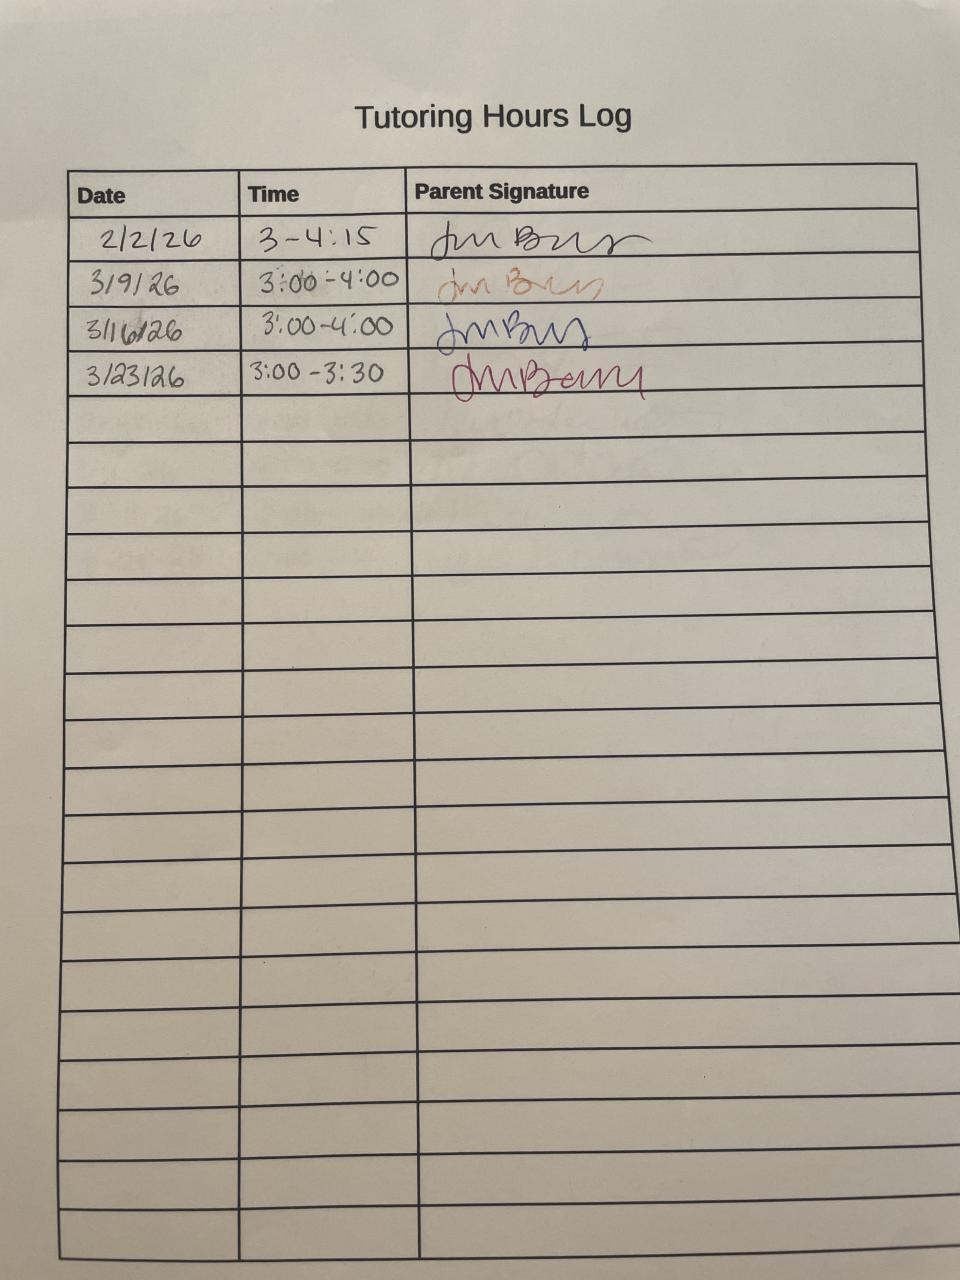 Tutoring Hours Log
Date Time Parent Signature
2/2/26 3-4:15
3/9/26 3:00-4:00
3/16/26 3:00-4:00
3/23/26 3:00-3:30